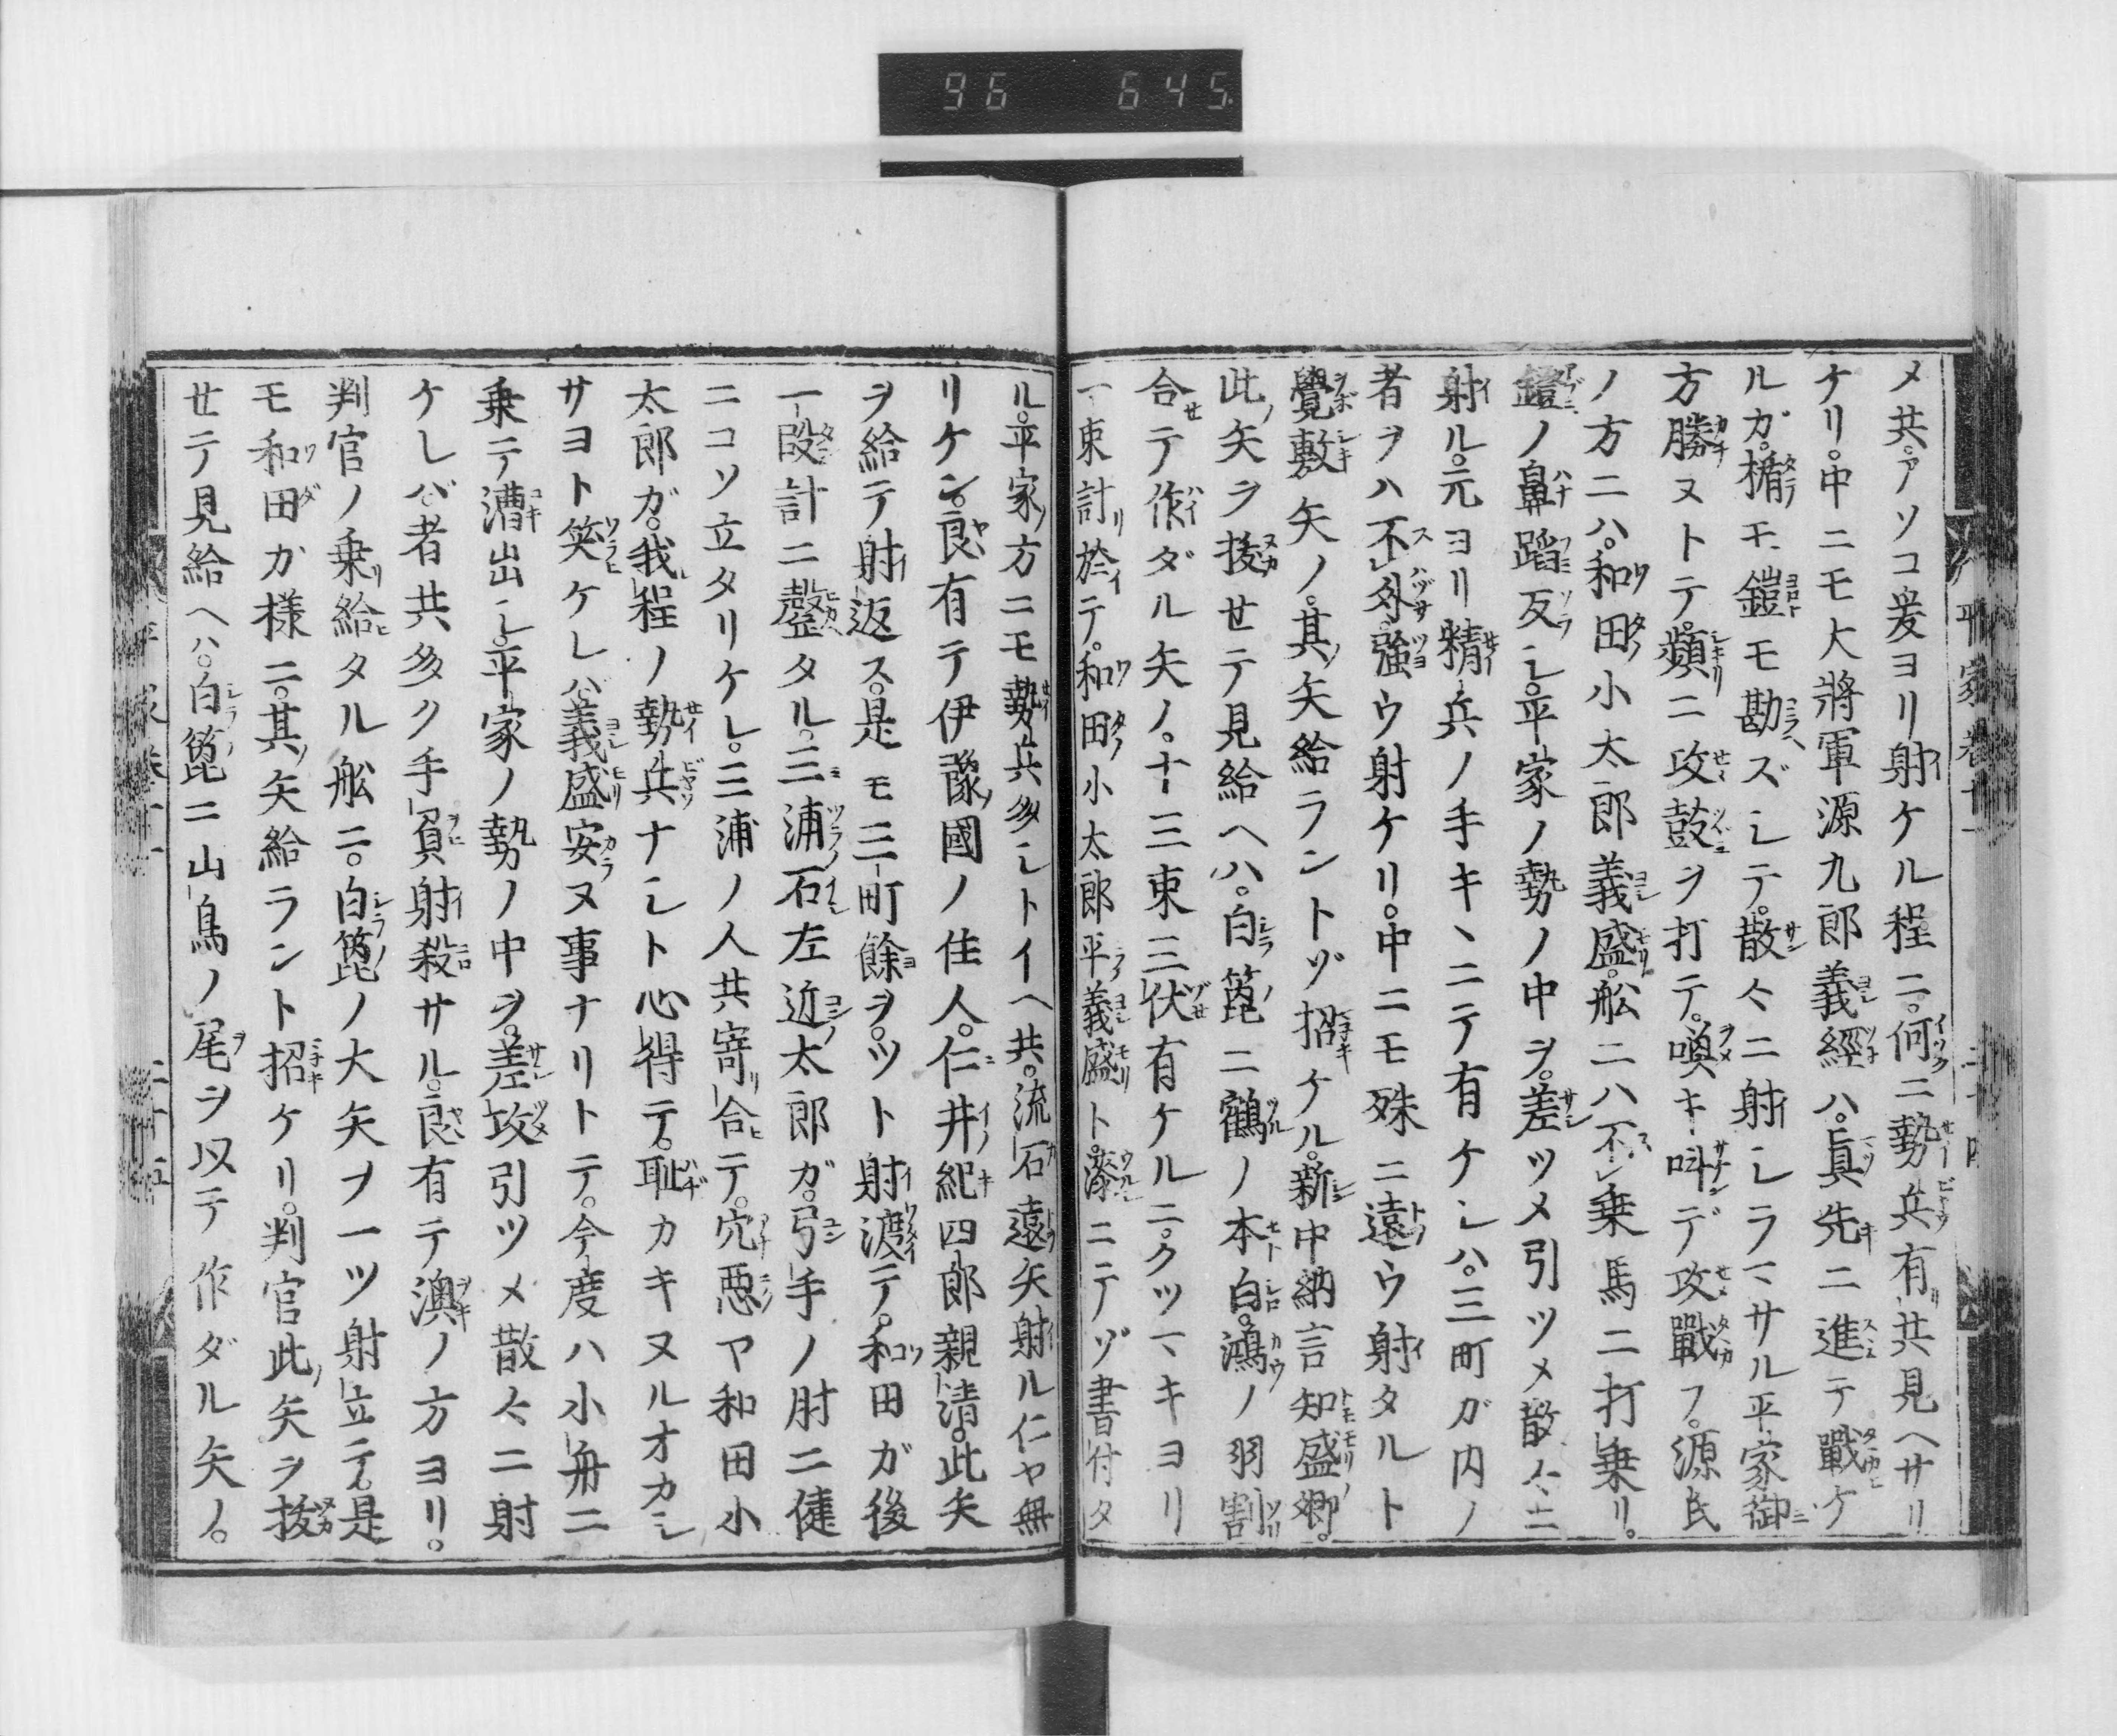 96 645
メ共。アソコ爰ヨリ射ケル程ニ。何ニ勢兵有共見ヘサリ
ケリ。中ニモ大將軍源九郎義經ハ。眞先ニ進テ戰ケ
ルガ。楯モ鎧モ勘ズシテ。散々ニ射シラマサル平家御
方勝ヌトテ。頻ニ攻鼓ヲ打テ。喚キ叫デ攻戰フ。源氏
ノ方ニハ。和田小太郎義盛。舩ニハ不乗馬ニ打乗リ。
鐙ノ鼻蹈反シ。平家ノ勢ノ中ヲ。差ツメ引ツメ散々ニ
射ル。元ヨリ精兵ノ手キヽニテ有ケレハ。三町ガ内ノ
者ヲハ不外。強ウ射ケリ。中ニモ殊ニ遠ウ射タルト
覺敷矢ノ。其矢給ラントゾ招ケル。新中納言知盛卿。
此矢ヲ拔せテ見給ヘハ。白箆ニ鶴ノ本白。鴻ノ羽割
合テ作ダル矢ノ。十三束三伏有ケルニ。クツマキヨリ
一束計於テ。和田小太郎平義盛ト。漆ニテゾ書付タ
平家巻十一
ル。平家ノ方ニモ勢兵多シトイヘ共。流石遠矢射ル仁ヤ無
リケン。良有テ伊豫國ノ住人。仁井紀四郎親清。此矢
ヲ給テ射返ス。是モ三町餘ヲ。ツト射渡テ。和田ガ後
一段計ニ整タル。三浦石左近太郎ガ。弓手ノ肘ニ健
ニコソ立タリケレ。三浦ノ人共寄合テ。穴惡ヤ和田小
太郎ガ。我程ノ勢兵ナシト心得テ。耻カキヌルオカシ
サヨト笑ケレバ。義盛安ヌ事ナリトテ。今度ハ小舟ニ
乗テ漕出シ。平家ノ勢ノ中ヲ。差攻引ツメ散々ニ射
ケレバ。者共多ク手負射殺サル。良有テ澳ノ方ヨリ。
判官ノ乗給タル舩ニ。白箆ノ大矢ヲ一ツ射立テ。是
モ和田カ様ニ。其矢給ラント招ケリ。判官此矢ヲ拔
せテ見給ヘハ。白箆ニ山鳥ノ尾ヲ以テ作ダル矢ノ。